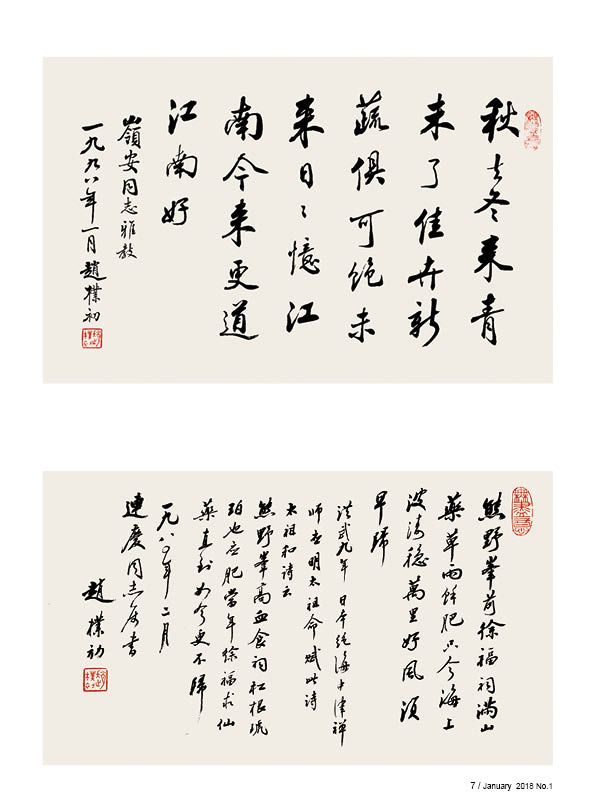 秋去冬来青
未了佳卉新
蔬俱可绝未
来日日憶江
南今来更道
江南好
嶺安同志雅教
一九九八年一月趙樸初
熊野峯前徐福祠滿山
藥草雨餘肥只今海上
波濤穩萬里好風須
早歸
洪武九年日本絶海中津禪
師應明太祖命賦此詩
太祖和詩云
熊野峯高血食祠松根琥
珀也應肥當年徐福求仙
藥直到如今更不歸
一九八〇年二月
連慶同志屬書
趙樸初
7 / January 2018 No.1